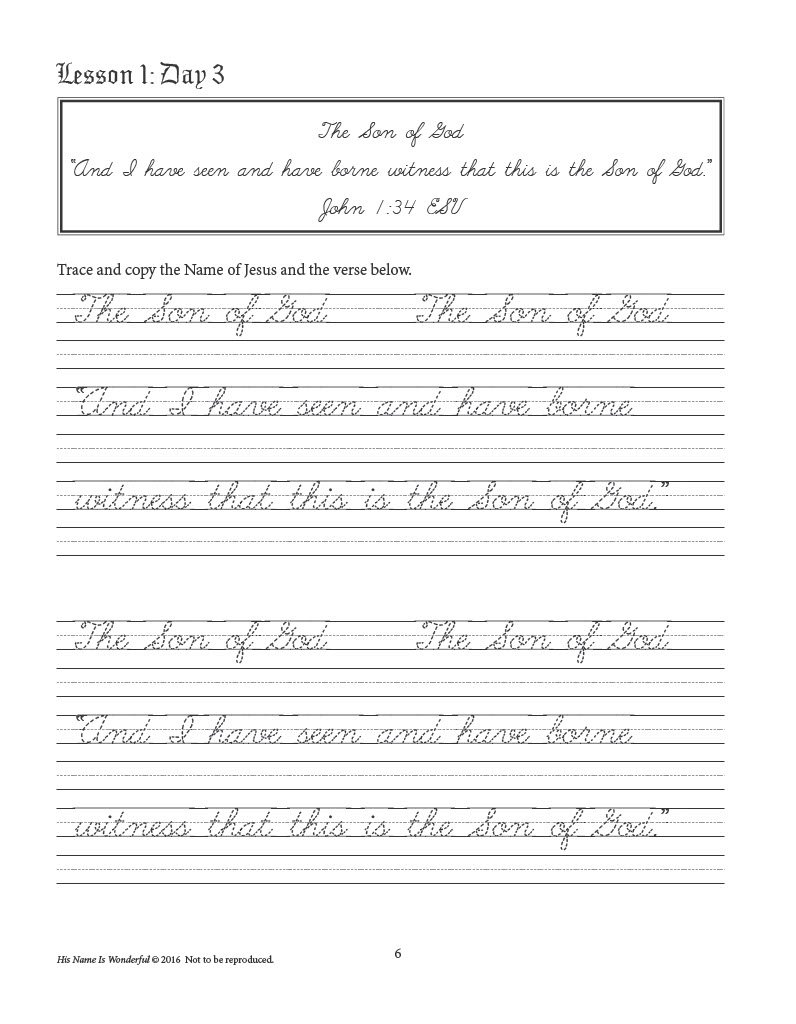 Lesson 1: Day 3
The Son of God
“And I have seen and have borne witness that this is the Son of God.”
John 1:34 ESV
Trace and copy the Name of Jesus and the verse below.
The Son of God The Son of God
“And I have seen and have borne
witness that this is the Son of God.”
The Son of God The Son of God
“And I have seen and have borne
witness that this is the Son of God.”
6
His Name Is Wonderful © 2016 Not to be reproduced.